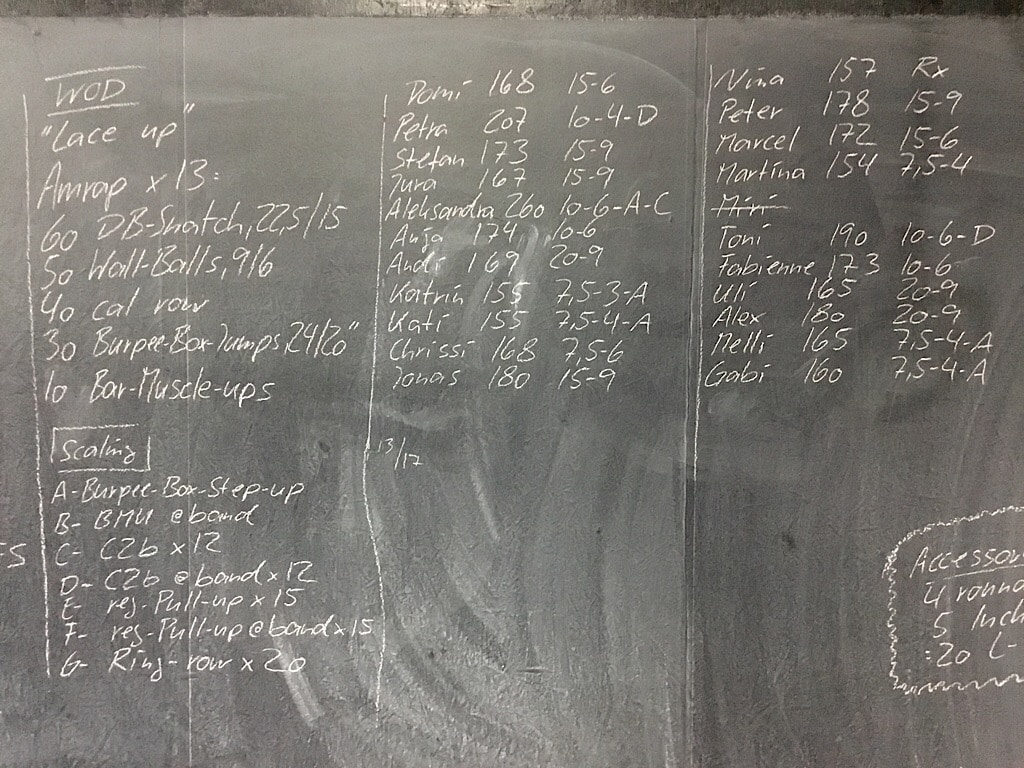 WOD
"Lace up"
Amrap x 13:
60 DB-Snatch, 22,5/15
50 Wall-Balls, 9/6
40 cal row
30 Burpee-Box-Jumps, 24/20"
10 Bar-Muscle-ups
Scaling
A-Burpee-Box-Step-up
B- BMU @band
C- C2b x 12
D- C2b @band x 12
E- reg-Pull-up x 15
F- reg-Pull-up @band x 15
G- Ring-row x 20
ES
Domi 168 15-6
Petra 207 10-4-D
Stefan 173 15-9
Jura 167 15-9
Aleksandra 260 10-6-A-C
Anja 174 10-6
Andi 169 20-9
Katrin 155 7,5-3-A
Kati 155 7,5-4-A
Chrissi 168 7,5-6
Jonas 180 15-9
13/17
Nina 157 Rx
Peter 178 15-9
Marcel 172 15-6
Martina 154 7,5-4
Miri
Toni 190 10-6-D
Fabienne 173 10-6
Uli 165 20-9
Alex 180 20-9
Melli 165 7,5-4-A
Gabi 160 7,5-4-A
Accessor
4 round
5 Inch
:20 L-